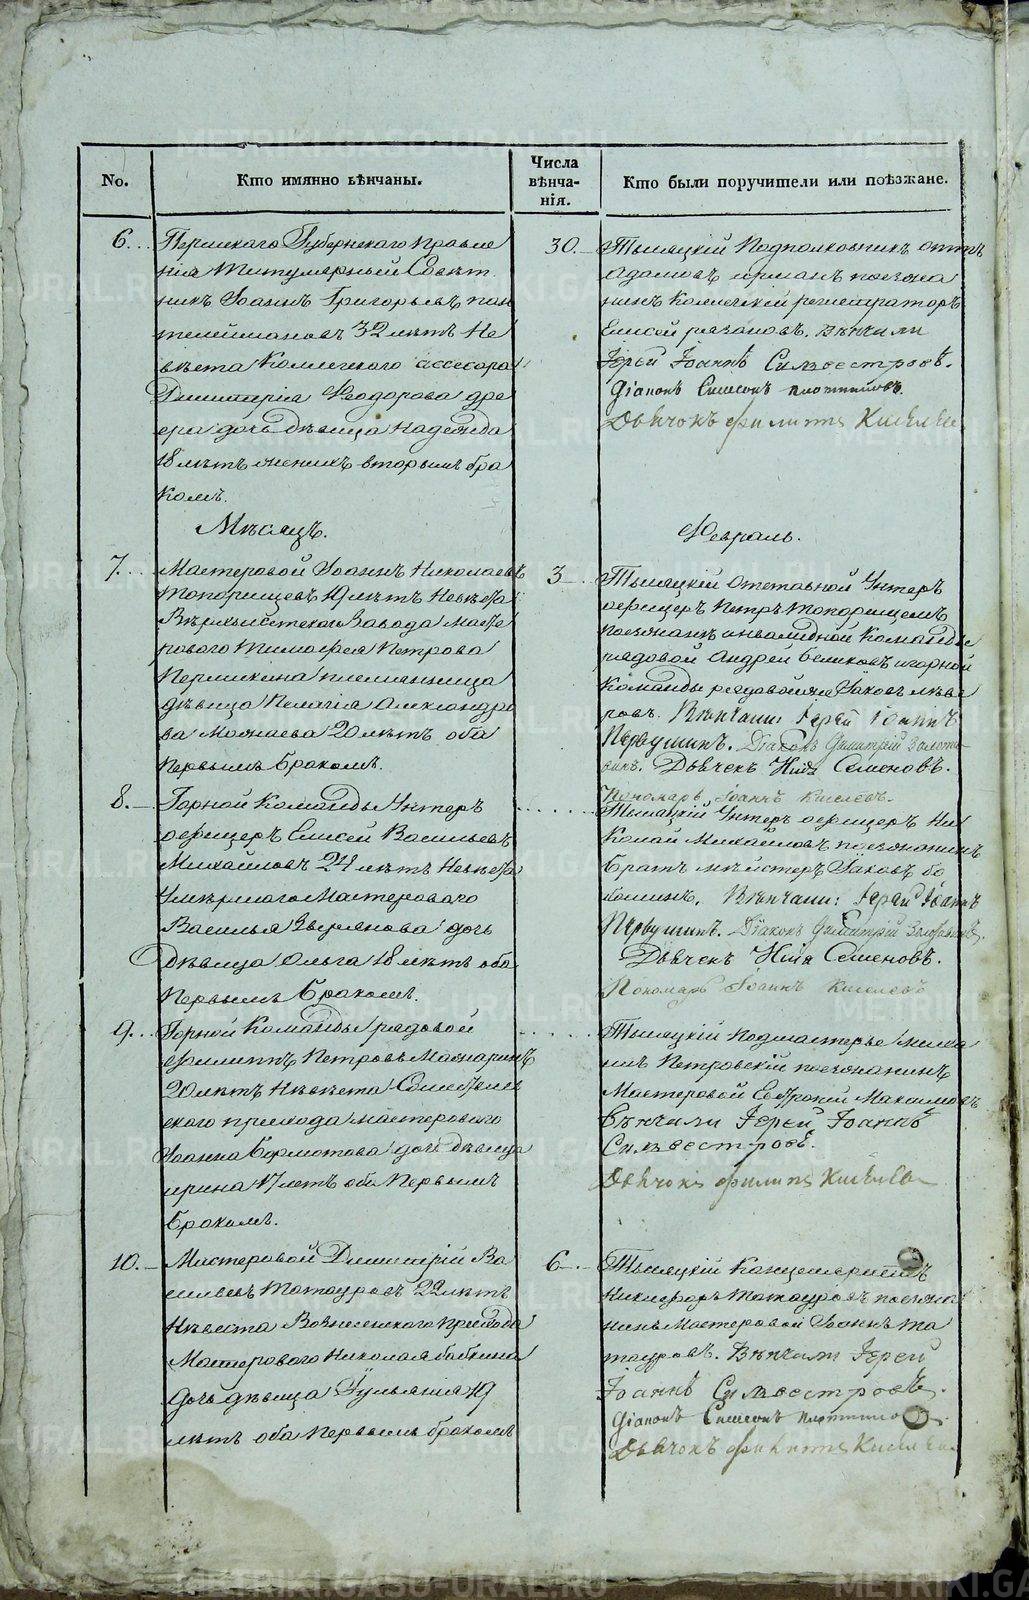 No.
Кто имянно вѣнчаны.
Числа
вѣнча-
нія.
Кто были поручители или поѣзжане.
6.
Пермскаго Губернскаго Правле
нія Титулярный Совѣт
никъ Іоаннъ Григорьевъ Пан
телеймоновъ 32 лѣтъ Не
вѣста Коллежскаго ассесора
Димитрія Ѳеодорова
дочь дѣвица Надежда
18 лѣтъ женихъ вторымъ бра
комъ.
30.
Тысяцкій Подполковникъ
Адамовъ поезжа
нинъ Коллежскій регистраторъ
Елисей рязановъ. Вѣнчали
Іерей Іоаннъ Сильвестровъ.
Діаконъ Симеонъ плотниковъ.
Дьячокъ филиппъ Киселевъ
Мѣсяцъ.
Февраль.
7.
Мастеровой Іоаннъ Николаевъ
Топорищевъ 19 лѣтъ Невѣста
Верхъисетскаго Завода Масте
роваго Тимофея Петрова
Пермикина племянница
дѣвица Пелагія Александро
ва 20 лѣтъ оба
первымъ бракомъ.
3
Тысяцкій отставной Унтеръ
офицеръ Петръ Топорищевъ
поезжанъ инвалидной Команды
рядовой Андрей Беликовъ игорной
Команды рядовой Іаковъ
ровъ. Вѣнчали: Іерей Іоаннъ
Первушинъ. Діаконъ Димитрій Золота-
винъ. Дьячекъ Нилъ Семеновъ.
Пономарь Іоаннъ Киселевъ.
8.
Горной Команды Унтеръ
офицеръ Елисей Васильевъ
Михайловъ 24 лѣтъ Невѣста
Умершаго Мастероваго
Василья Зверянова дочь
дѣвица Ольга 18 лѣтъ оба
первымъ бракомъ.
Тысяцкій Унтеръ офицеръ Ни
колай Михайловъ поезжанинъ
Братъ Іаковъ бо
Вѣнчали: Іерей Іоаннъ
Первушинъ. Діаконъ Димитрій Золотавинъ.
Дьячекъ Нилъ Семеновъ.
Пономарь Іоаннъ Киселевъ
9.
Горной Команды рядовой
филиппъ Петровъ
20 лѣтъ Невѣста
скаго прихода мастероваго
Іоанна Бормотова дочь дѣвица
ирина 17 летъ оба первымъ
бракомъ.
Тысяцкій Подмастерье Миха
илъ Петровскій поезжанинъ
Мастеровой Максимовъ
Вѣнчали Іерей Іоаннъ
Сильвестровъ.
Дьячокъ филиппъ Киселевъ
10.
Мастеровой Димитрій Ва
сильевъ Татауровъ 22 лѣтъ
Невѣста Вознесенскаго прихода
Мастероваго Николая бабкина
дочь дѣвица Іульянія 19
лѣтъ оба первымъ бракомъ
6
Тысяцкій Канцеляристъ
Никифоръ Татауровъ поезжа
нинъ Мастеровой Іоаннъ та
тауровъ. Вѣнчали Іерей
Іоаннъ Сильвестровъ.
Діаконъ Симеонъ плотниковъ.
Дьячокъ филиппъ Киселевъ
METRIKI.GASO-URAL.RU